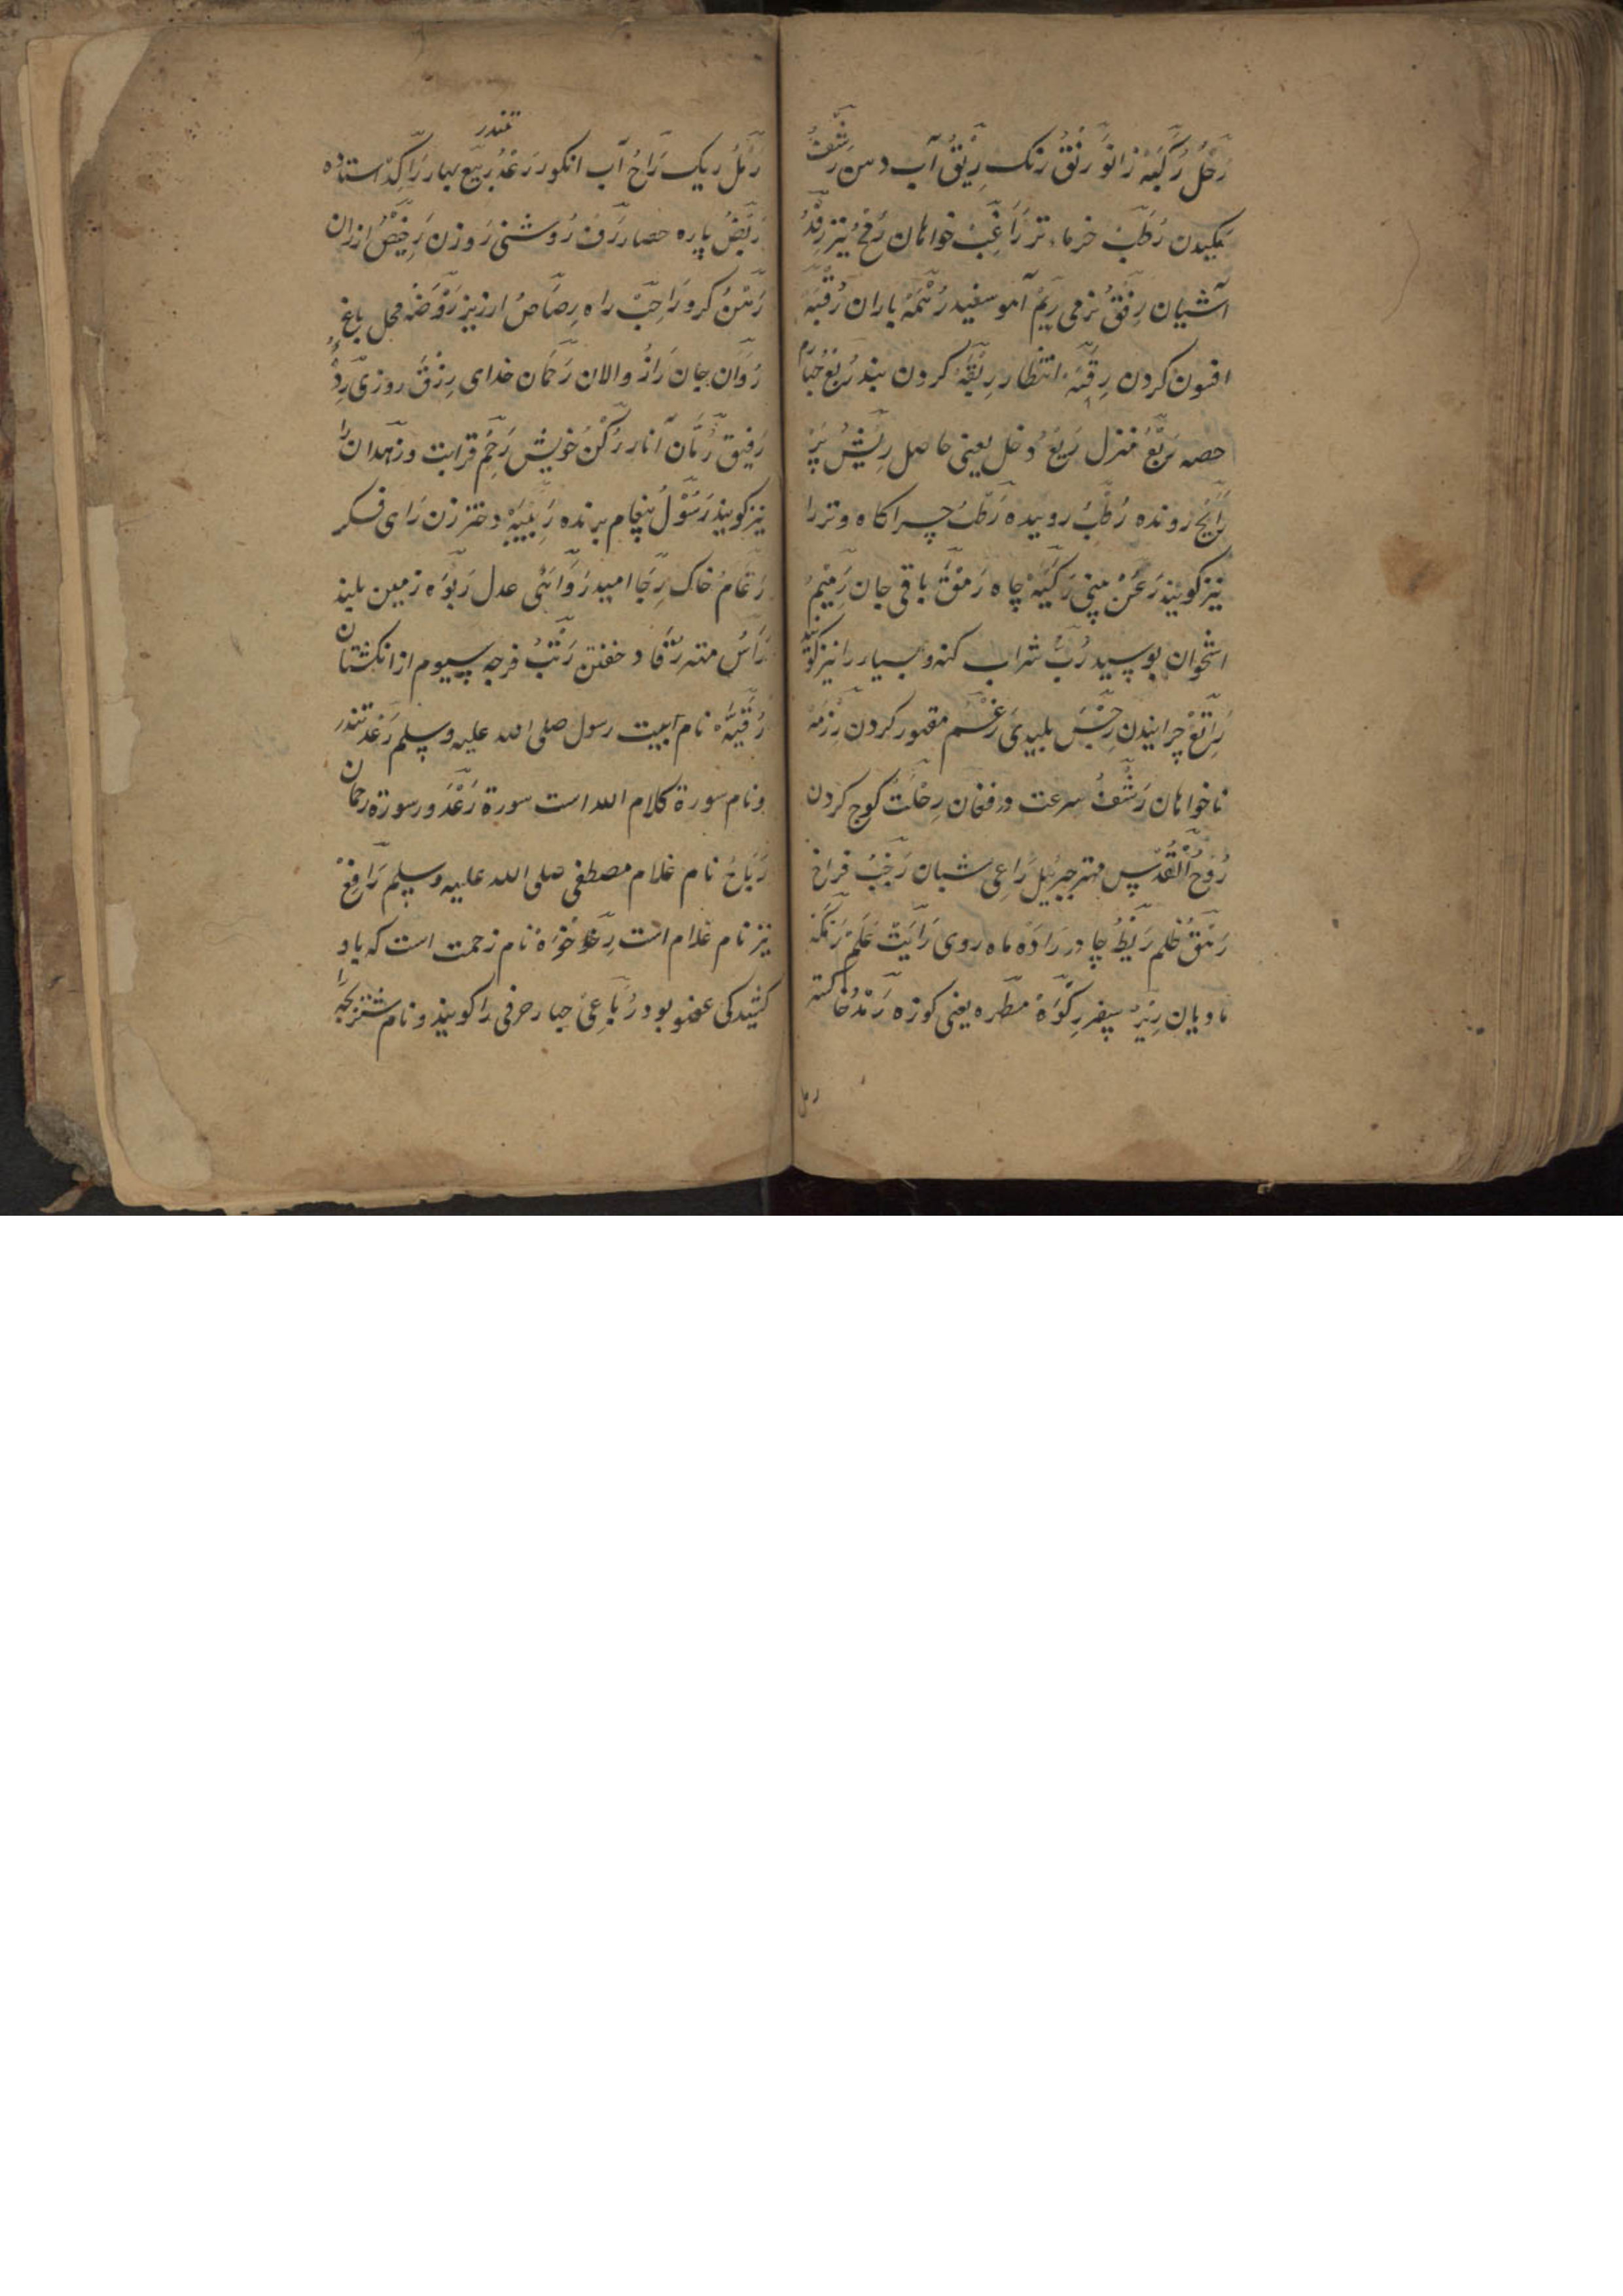 رَحْلُ رُكْبَهْ زانو رَنْقُ رنک رِیْقُ آب دهن رَشْفُ
مکیدن رُطَبْ خرماء تر رَاغِبْ خواهان رُمْحُ نیز رَفْدُ
آشیان رِفْقُ نرمی رِیمُ آهو سفید رُثْمَهُ باران رُقْیَهْ
افسون کردن رِقْبَهْ انتظار رِبْقَهْ کردن بند رُبْعُ چهارم
حصه رَبْعُ منزل رَیْعُ دخل یعنی حاصل رِیْشُ پَرْ
رَایِجْ رونده رُطَبُ روییده رَطْبُ چراکاه و تر را
نیز کویند رَعَنْ بینی رَکِیَّهْ چاه رَمَقْ باقی جان رَمِیْمُ
استخوان بوسید رُبُّ شراب کنه و بسیار را نیز کویند
رَاتِعْ چرانیدن رِجْسْ پلیدی رَغْم مقهور کردن
ناخواهان رَشْفُ سرعت در فغان رِحْلَتْ کوچ کردن
رُوْحُ الْقُدُسِ مهتر جبرئیل رَاعِی شبان رَحْبُ فراخ
رَیْطُ چادر رَادَهْ ماه روی رَایَتْ عَلَمْ رَمَکَهْ
مادیان سپر رِکْوَهْ مطهره یعنی کوزه رَمْدُ خاکستر
رمل
رَمْلُ ریک رَاحُ آب انکور رَعْدُ تندر رَبِیْع بهار رَاکِدْ استاده
رَبَضُ پاره حصار رَوْزَن رَخِیْصُ ارزان
رَهْنُ کرو رَاحِبْ راه رِصَاصُ ارزیز رَوْضَهْ محل باغ
رَوَان جان رَازُ والان رَحْمَان خدای رِزْقَ روزی
رَفِیق رُمَّان آنار رُکْنُ خویش رَحِمِ قرابت و زهدان را
نیز کویند رَسُوْلُ پیغام برنده رَبِیْبَهْ دختر زن رَای فکر
رَغَامُ خاک رِجَا امید رَوَائی عدل رَبْوَه زمین بلند
رَاسُ مهتر رُقَاد خفتن رَتَبُ فرجه سیوم از انکشتان
رُقَیَّه نام اببیت رسول صلی الله علیه وسلم رَعْد تندر
و نام سورة کلام الله است سورة رَعْدَ و سورة رحمان
رَبَاحُ نام غلام مصطفی صلی الله علیه وسلم رَافِعْ
نیز نام غلام است نام زحمت است که باد
کشیدکی عضو بود رُبَاعِیْ چهار حرفی را کویند و نام شتربچه را